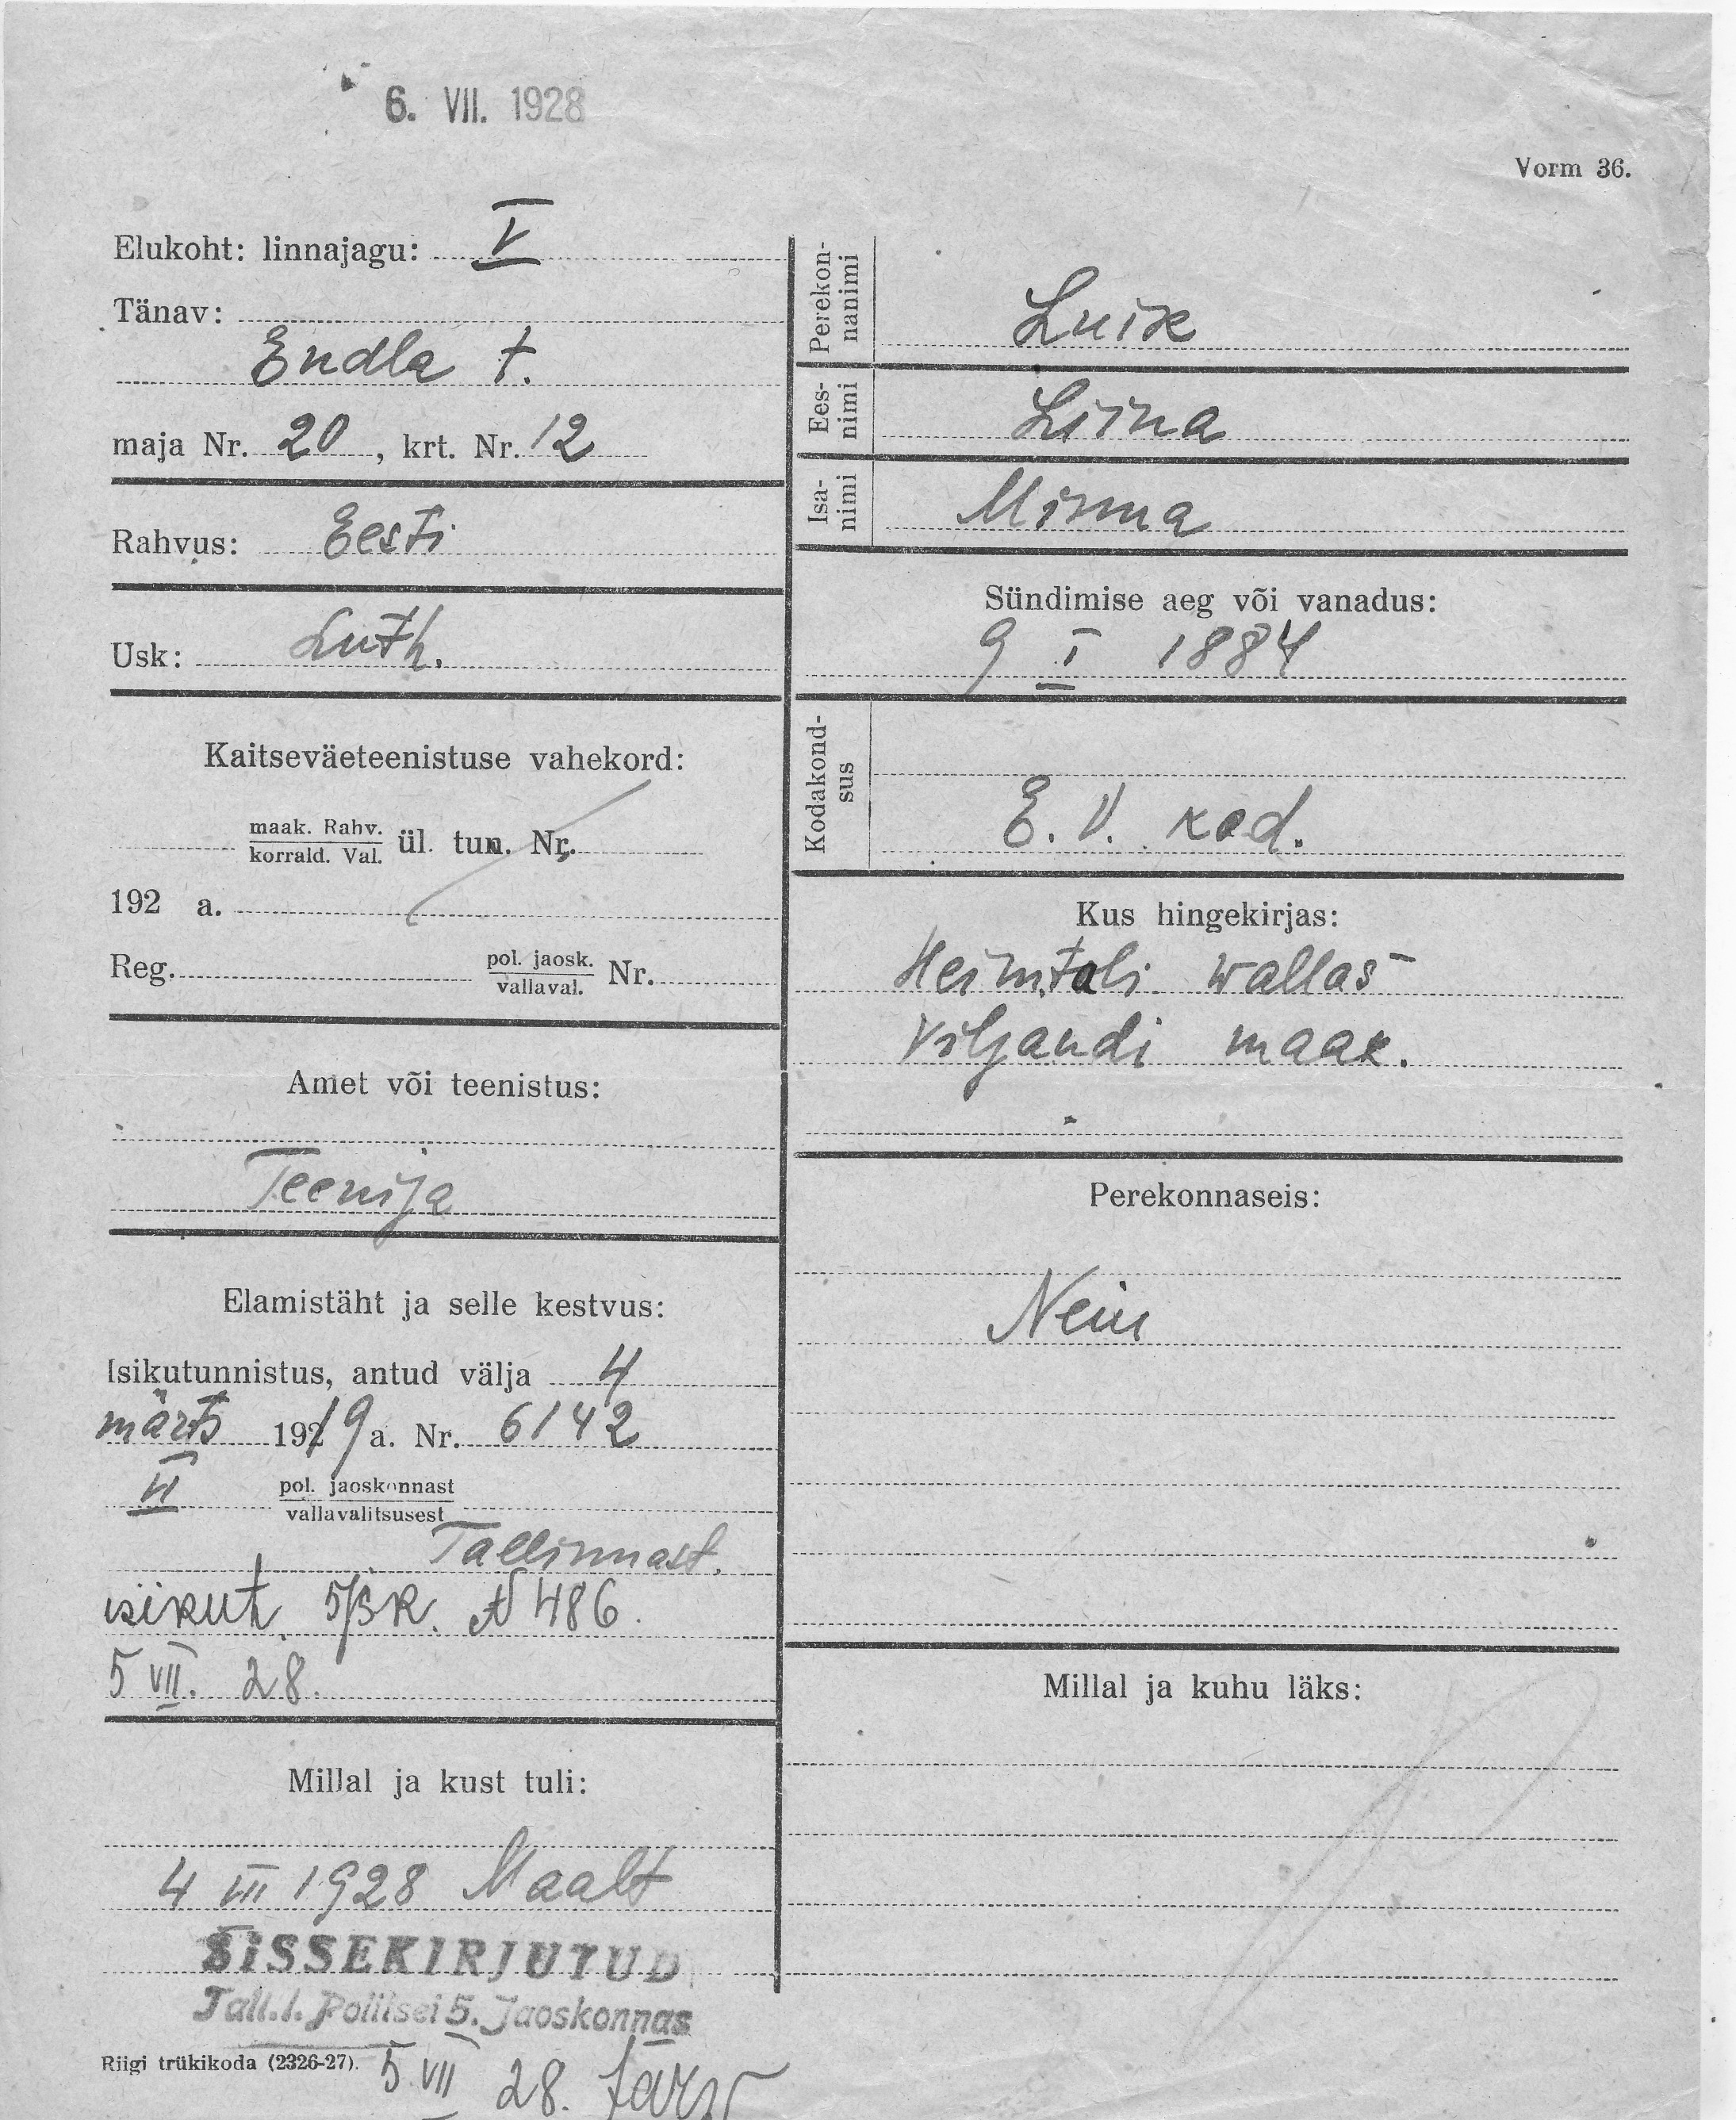 6. VII. 1928
Vorm 36.
Elukoht: linnajagu: V
Tänav:
Endla t.
maja Nr. 20, krt. Nr. 12
Rahvus: Eesti
Usk: Luth.
Kaitseväeteenistuse vahekord:
maak. Rahv.
korrald. Val.
ül. tun. Nr.
192 a.
Reg.
pol. jaosk.
vallaval.
Nr.
Amet või teenistus:
Teenija
Elamistäht ja selle kestvus:
Isikutunnistus, antud välja 4
märts 1919 a. Nr. 6142
pol. jaoskonnast
vallavalitsusest
Tallinnast.
isikut. 5/jsk. № 486.
5 VII. 28.
Millal ja kust tuli:
4 III 1928 Maalt
SISSEKIRJUTUD
Tall. l. Politsei 5. Jaoskonnas
Riigi trükikoda (2326-27).
5 VII 28.
Perekon-
nanimi
Luik
Ees-
nimi
Liina
Isa-
nimi
Minna
Sündimise aeg või vanadus:
9 I 1884
Kodakond-
sus
E. V. kod.
Kus hingekirjas:
Heimtali wallas
Viljandi maak.
Perekonnaseis:
Neiu
Millal ja kuhu läks: